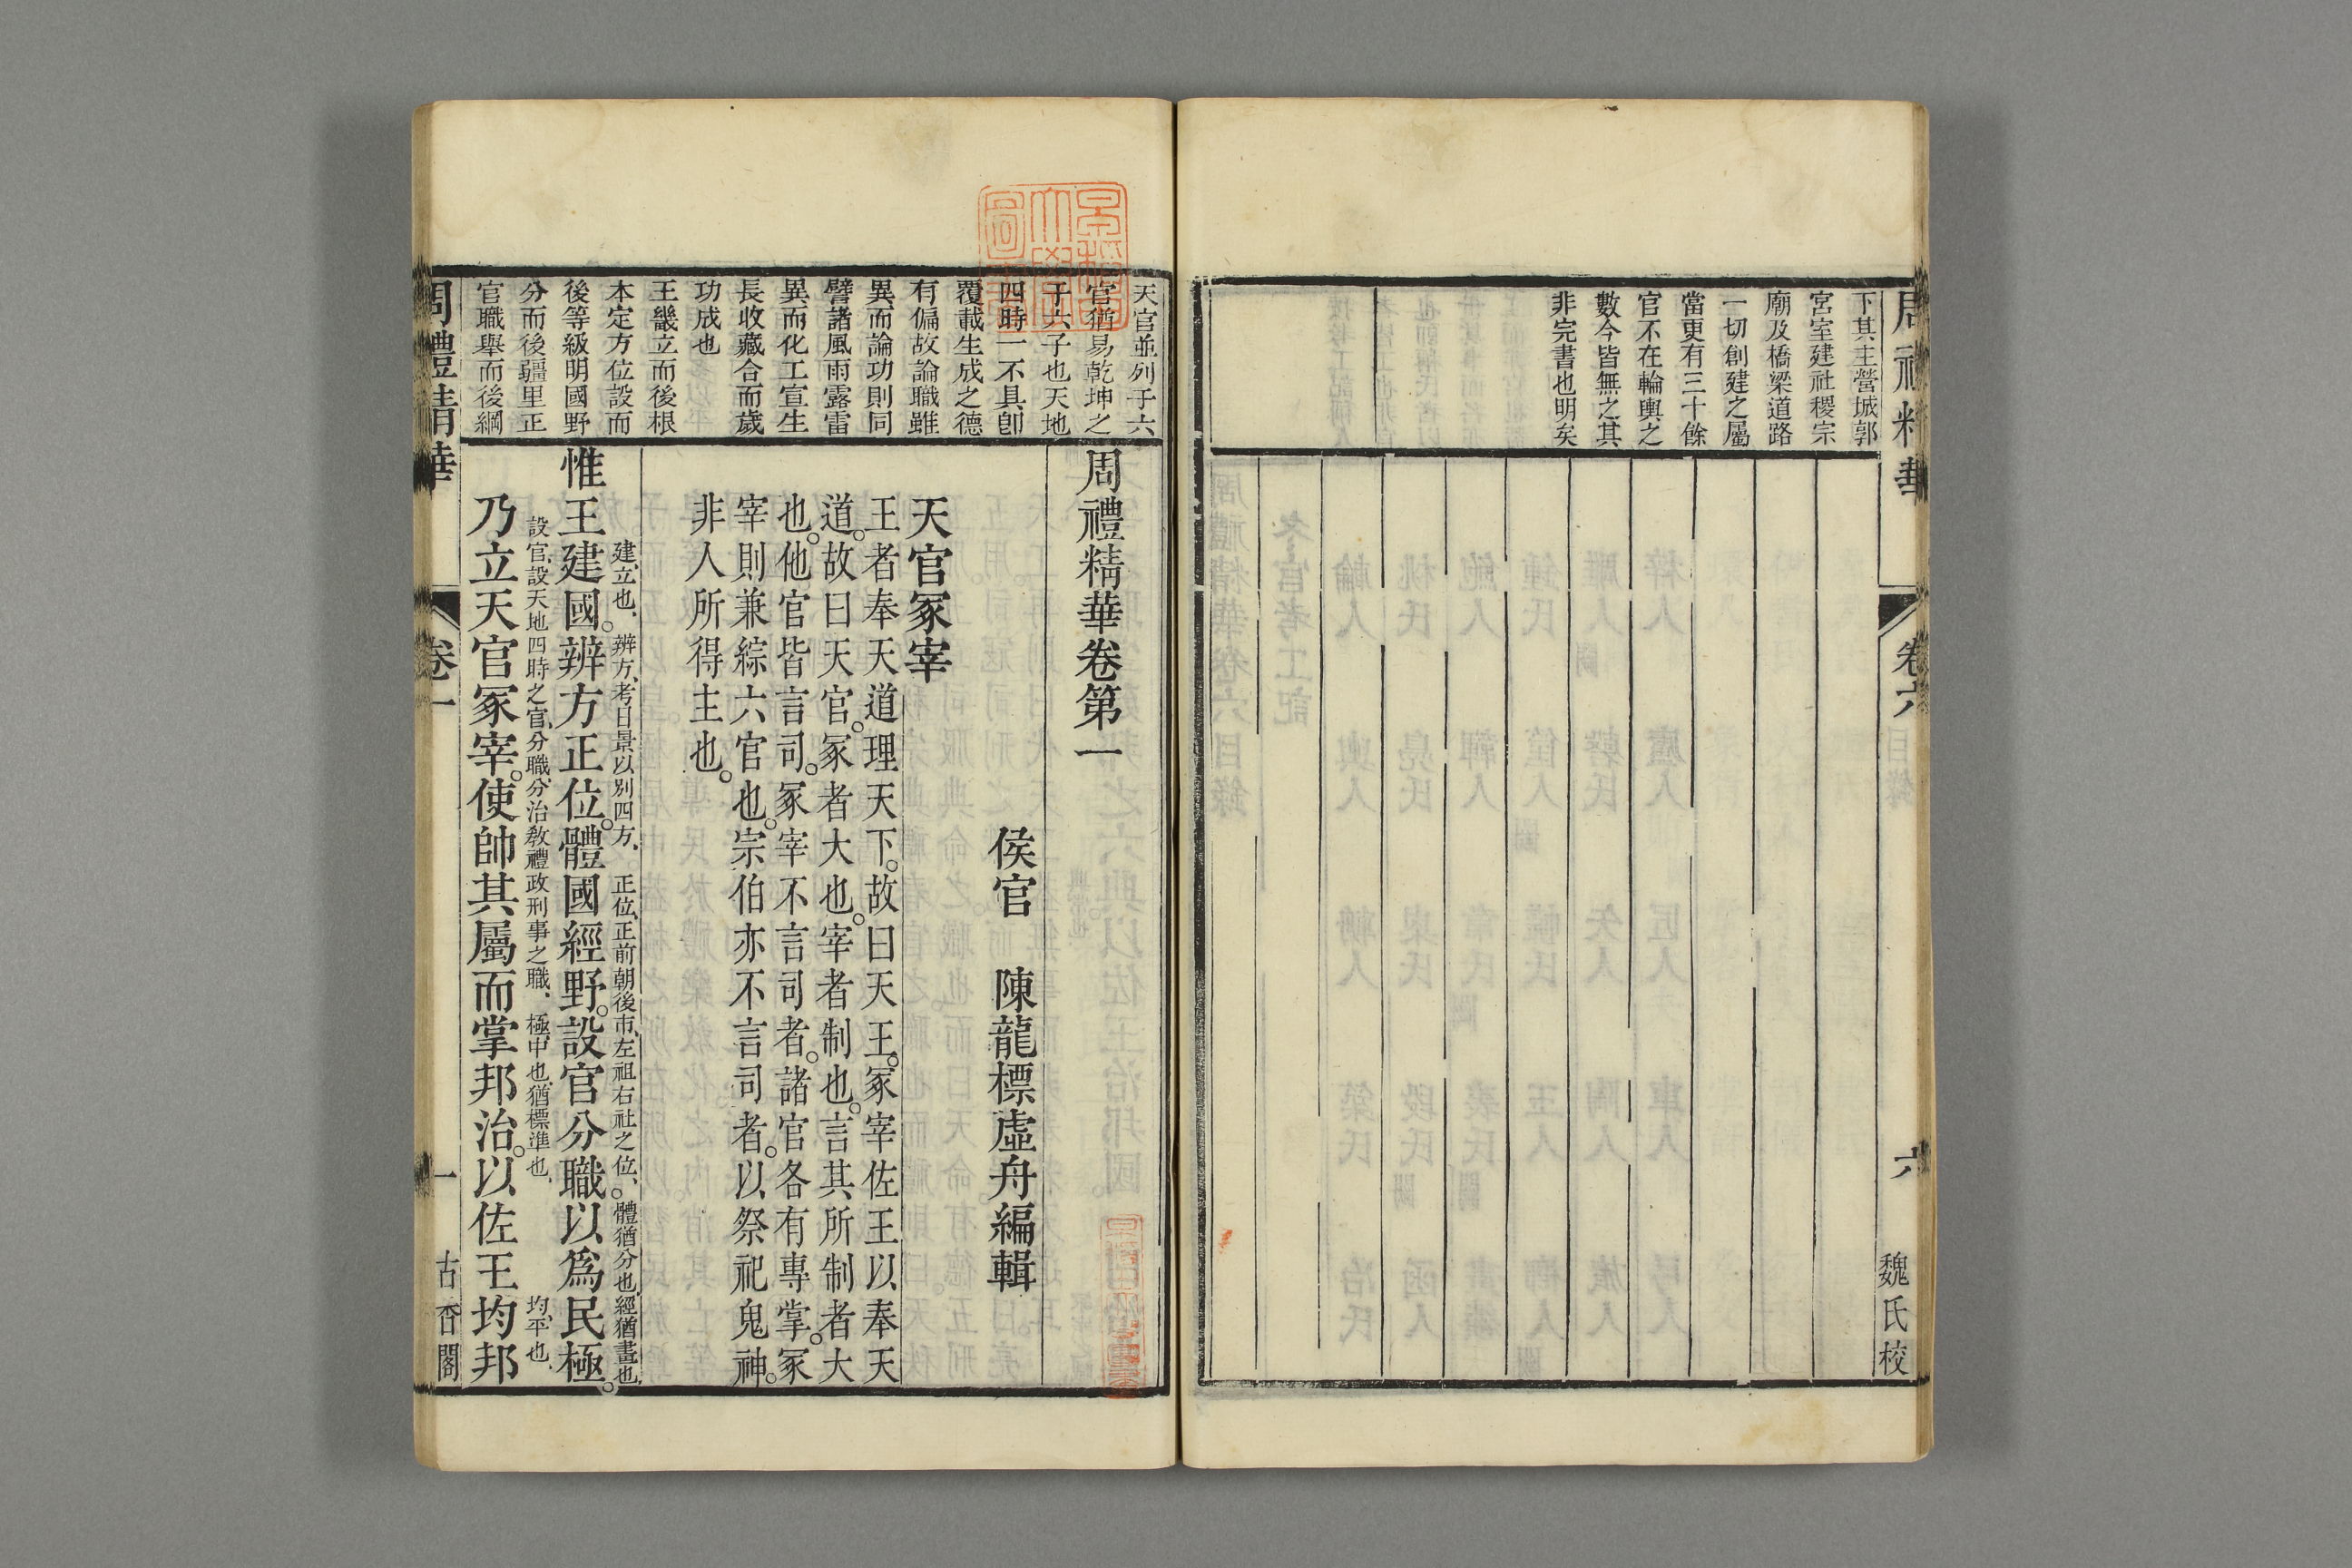 周禮精華
卷六
目錄
六
魏氏校
下其主營城郭
宮室建社稷宗
廟及橋梁道路
一切創建之屬
當更有三十餘
官不在輪輿之
數今皆無之其
非完書也明矣
天官並列于六
官猶易乾坤之
于六子也天地
四時一不具卽
覆載生成之德
有偏故論職雖
異而論功則同
譬諸風雨露雷
異而化工宣生
長收藏合而歲
功成也
王畿立而後根
本定方位設而
後等級明國野
分而後疆里正
官職舉而後綱
周禮精華卷第一
侯官 陳龍標虛舟編輯
天官冢宰
王者奉天道理天下。故曰天王。冢宰佐王以奉天
道。故曰天官。冢者大也。宰者制也。言其所制者大
也。他官皆言司。冢宰不言司者。諸官各有專掌。冢
宰則兼綜六官也。宗伯亦不言司者。以祭祀鬼神。
非人所得主也。
建、立也、辨方、考日景以別四方、正位、正前朝後市、左祖右社之位、體猶分也、經猶畫也、
惟王建國。辨方正位。體國經野。設官分職。以爲民極。
設官、設天地四時之官、分職、分治敎禮政刑事之職、極、中也、猶標準也、均、平也、
乃立天官冢宰。使帥其屬而掌邦治。以佐王均邦
周禮精華
卷一
一
古香閣